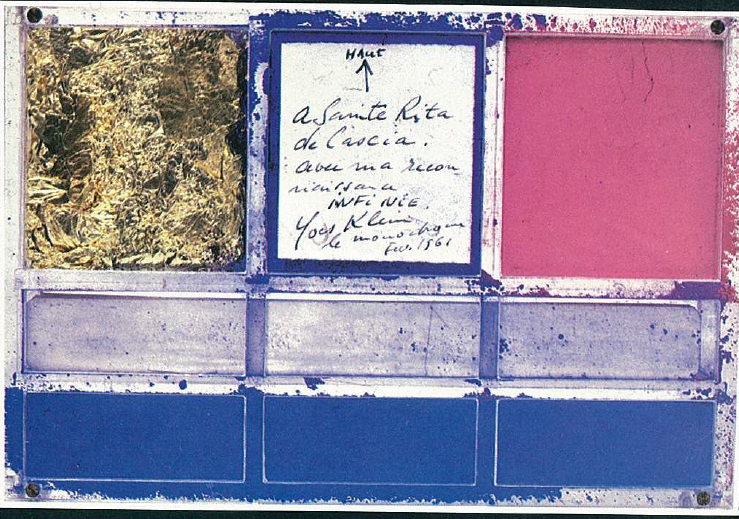 HAUT
a Sainte Rita
de Cascia.
avec ma recon
naissance
INFINIE.
Yves Klein
le monochrome
Fev. 1961